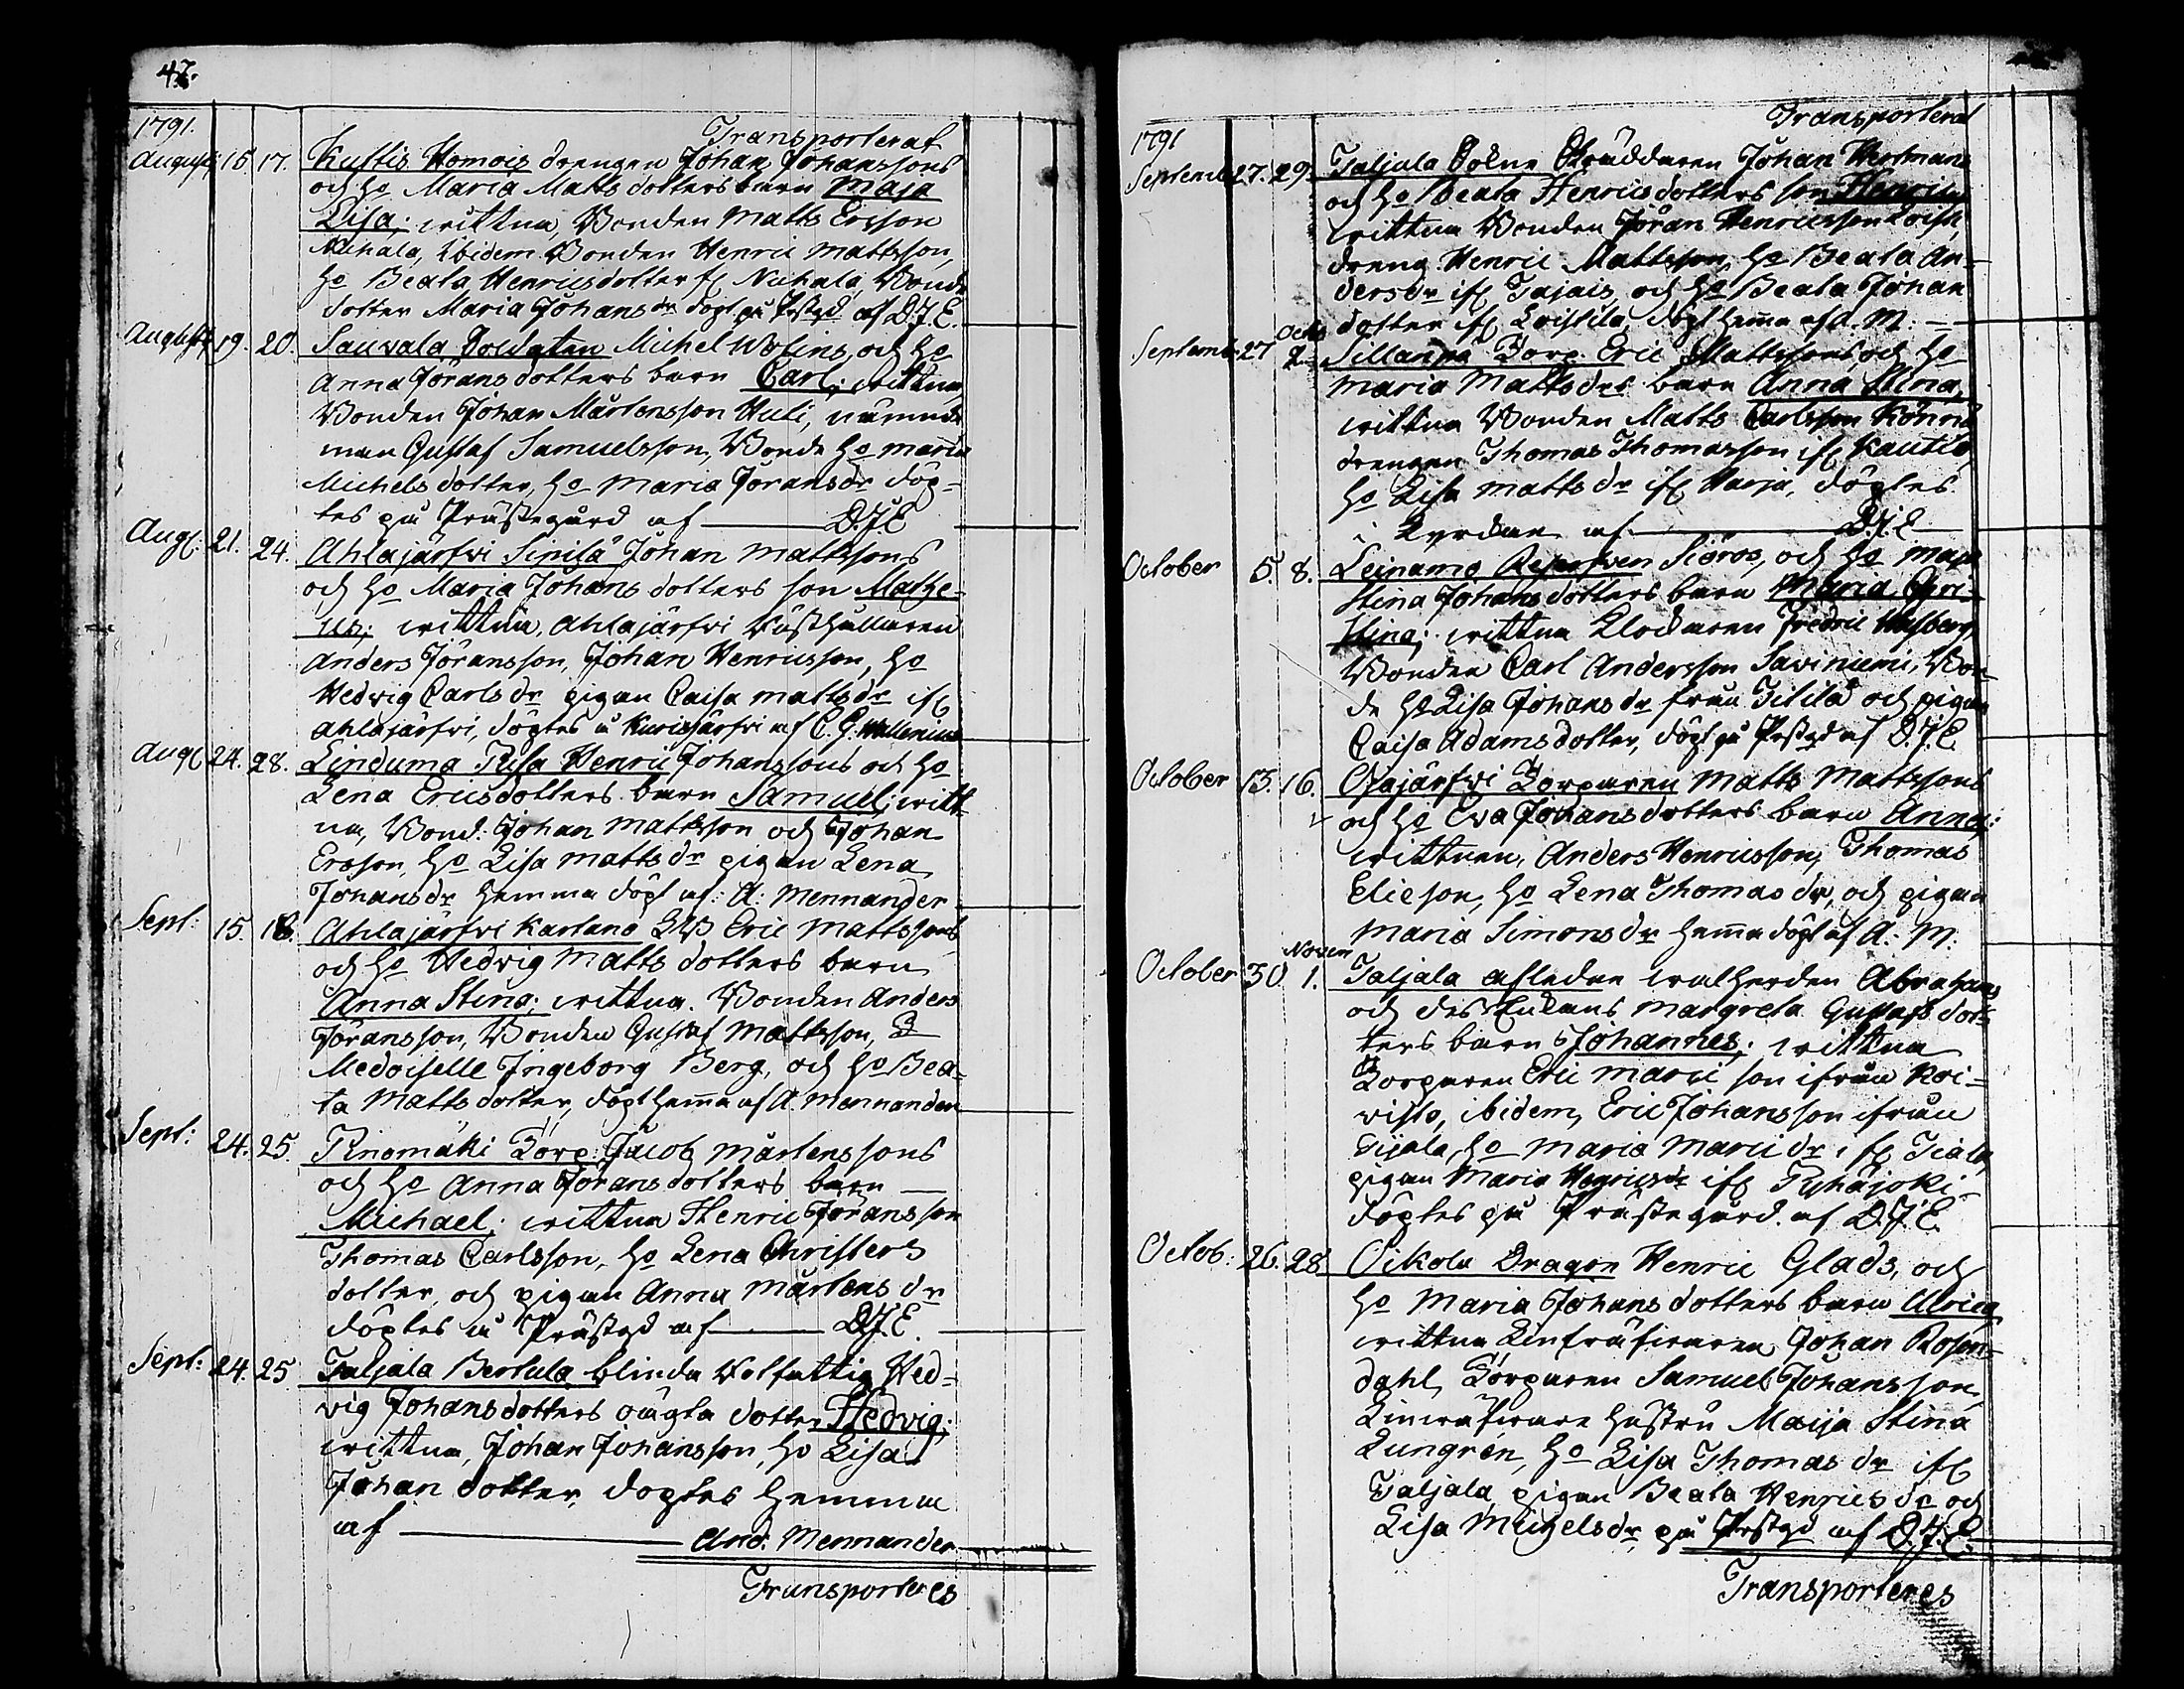 47.
1791.
Transporterat
August: 15. 17. Kustis Homois drengen Johan Johanssons
och ho Maria Matts dotters barn Maja
Lisa; wittna, Bonden Matts Ersson
Nuhala, Ibidem Bonden Henric Mattsson,
ho Beata Henricsdotter fr Nuhala, Bonde
dotter Maria Johans dr döpt på Prstgd af D.J.E.
August: 19. 20. Sauvala Soldaten Michel Wolins, och ho
Anna Jörans dotters barn Carl; wittna,
Bonden Johan Mårtensson Huti, nämnde
man Gustaf Samuelsson, Bonde ho maria
Michels dotter, ho Maria Jörans dr döp-
tes på Prästegård af D.J.E
Aug: 21. 24. Ahlajärfwi Sipilä Johan Mattssons
och ho Maria Johans dotters son Mathe-
us; wittna, Ahlajärfwi Rusthållaren
Anders Jöransson, Johan Henricsson, ho
Hedvig Carls dr pigan Caisa matts dr ifr
Ahlajärfwi, döptes i Kurisjärfvi af C. G. Wallenius
Aug: 24. 28. Linduma Pesa Henric Johanssons och ho
Lena Ericsdotters barn Samuel; witt-
na, Bond: Johan Mattsson och Johan
Ersson, ho Lisa Matts dr pigan Lena
Johans dr hemma döpt af: A: Mennander
Sept: 15. 18. Ahlajärfwi Karlano Eric Mattssons
och ho Hedvig Matts dotters barn
Anna Stina; wittna. Bonden Anders
Jöransson, Bonden Gustaf Mattsson,
Medoiselle Ingeborg Berg, och ho Bea-
ta Matts dotter, döpt hema af A. Mennander
Sept: 24. 25. Pinomäki Torp: Jacob Mårtenssons
och ho Anna Jörans dotters barn
Michael; wittna Henric Jöransson
Thomas Carlsson, ho Lena Christers
dotter, och pigan Anna Mårtens dr
döptes i Prästgd af D.J.E.
Sept: 24. 25. Taljala Bertula blinda Rotfattig Hed-
vig Johansdotters oägta dotter Hedvig;
wittna, Johan Johansson, ho Lisa
Johan dotter, döptes hemma
af And: Mennander
Transporteres
Transporterat
1791
Septemb: 27. 29. Taljala Skräddaren Johan Hertmans
och ho Beata Henricsdotters son Henric;
wittna Bonden Jöran Henricsson
dreng Henric Mattsson, ho Beata An-
ders dr ifr Tajais, och ho Beata Johan
dotter ifr Koistila, döpt hema af A. M:
Septemb: 27 Octob 2. Sillanpä Torp. Eric Mattssons, och ho
Maria Matts drs barn Anna Stina,
wittna Bonden Matts Carlsson Könni
drengen Thomas Thomasson ifr Kautio,
ho Lisa matts dr ifr Harja, döptes
i Kyrkan af D.J.E
October 5. 8. Leinamo Sjöros, och ho Maja
Stina Johans dotters barn Maria Chri-
stina; wittna Klockaren Fredric
Bonden Carl Andersson Saviniemi, Bon-
de ho Lisa Johans dr från Tilila och pigan
Caisa Adams dotter, döpt på Prstgd af D.J.E.
October 13. 16. Ojajärfwi Torparen Matts Mattssons
och ho Eva Johans dotters barn Anna;
wittnen, Anders Henricsson, Thomas
Elieson, ho Lena Thomas dr, och pigan
Maria Simons dr hema döpt af A: M:
October 30 Novem 1. Taljala afledne walherden Abrahams
och des Enkans Margreta Gustafs dot-
ters barn Johannes; wittna
Torparen Eric Marci son ifrån Koi-
wisto, ibidem, Eric Johansson ifrån
Tijala, ho Maria Marci dr ifr Tiala,
pigan Maria Henrics dr ifr Pyhäjoki
döptes på Prästegård. af D.J.E.
Octob: 26. 28. Pikola Dragon Henric Glads, och
ho Maria Johans dotters barn Ulrica
wittna Linwäfwaren Johan Rosen-
dahl, Torparen Samuel Johansson,
Linwäfware hustru Maija Stina
Lungrén, ho Lisa Thomas dr ifr
Taljala, pigan Beata Henrics dr och
Lisa Michels dr på Prstgd af D.J.E.
Transporteres